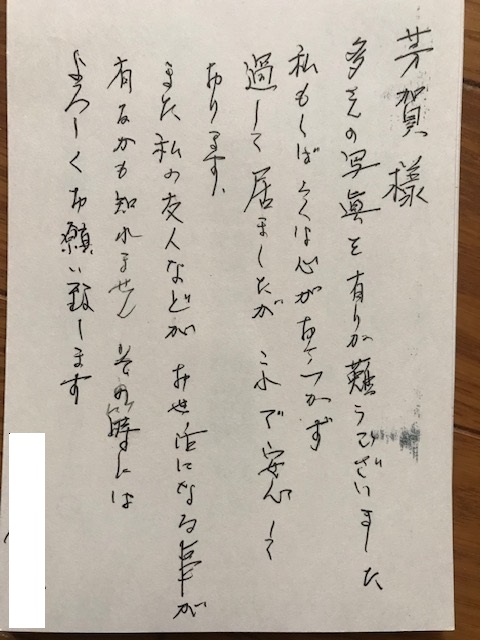 芳賀様
多くの写眞を有りが難うございました
私もしばらくは心がおちつかず
過して居ましたが これで安心して
おります、
また私の友人などが お世話になる事が
有るかも知れません その時には
よろしくお願い致します